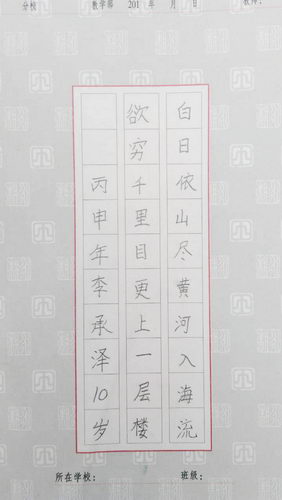 分校 教学部 201 年 月 日 教师:
白日依山尽黄河入海流
欲穷千里目更上一层楼
丙申年李承泽10岁
所在学校: 班级: